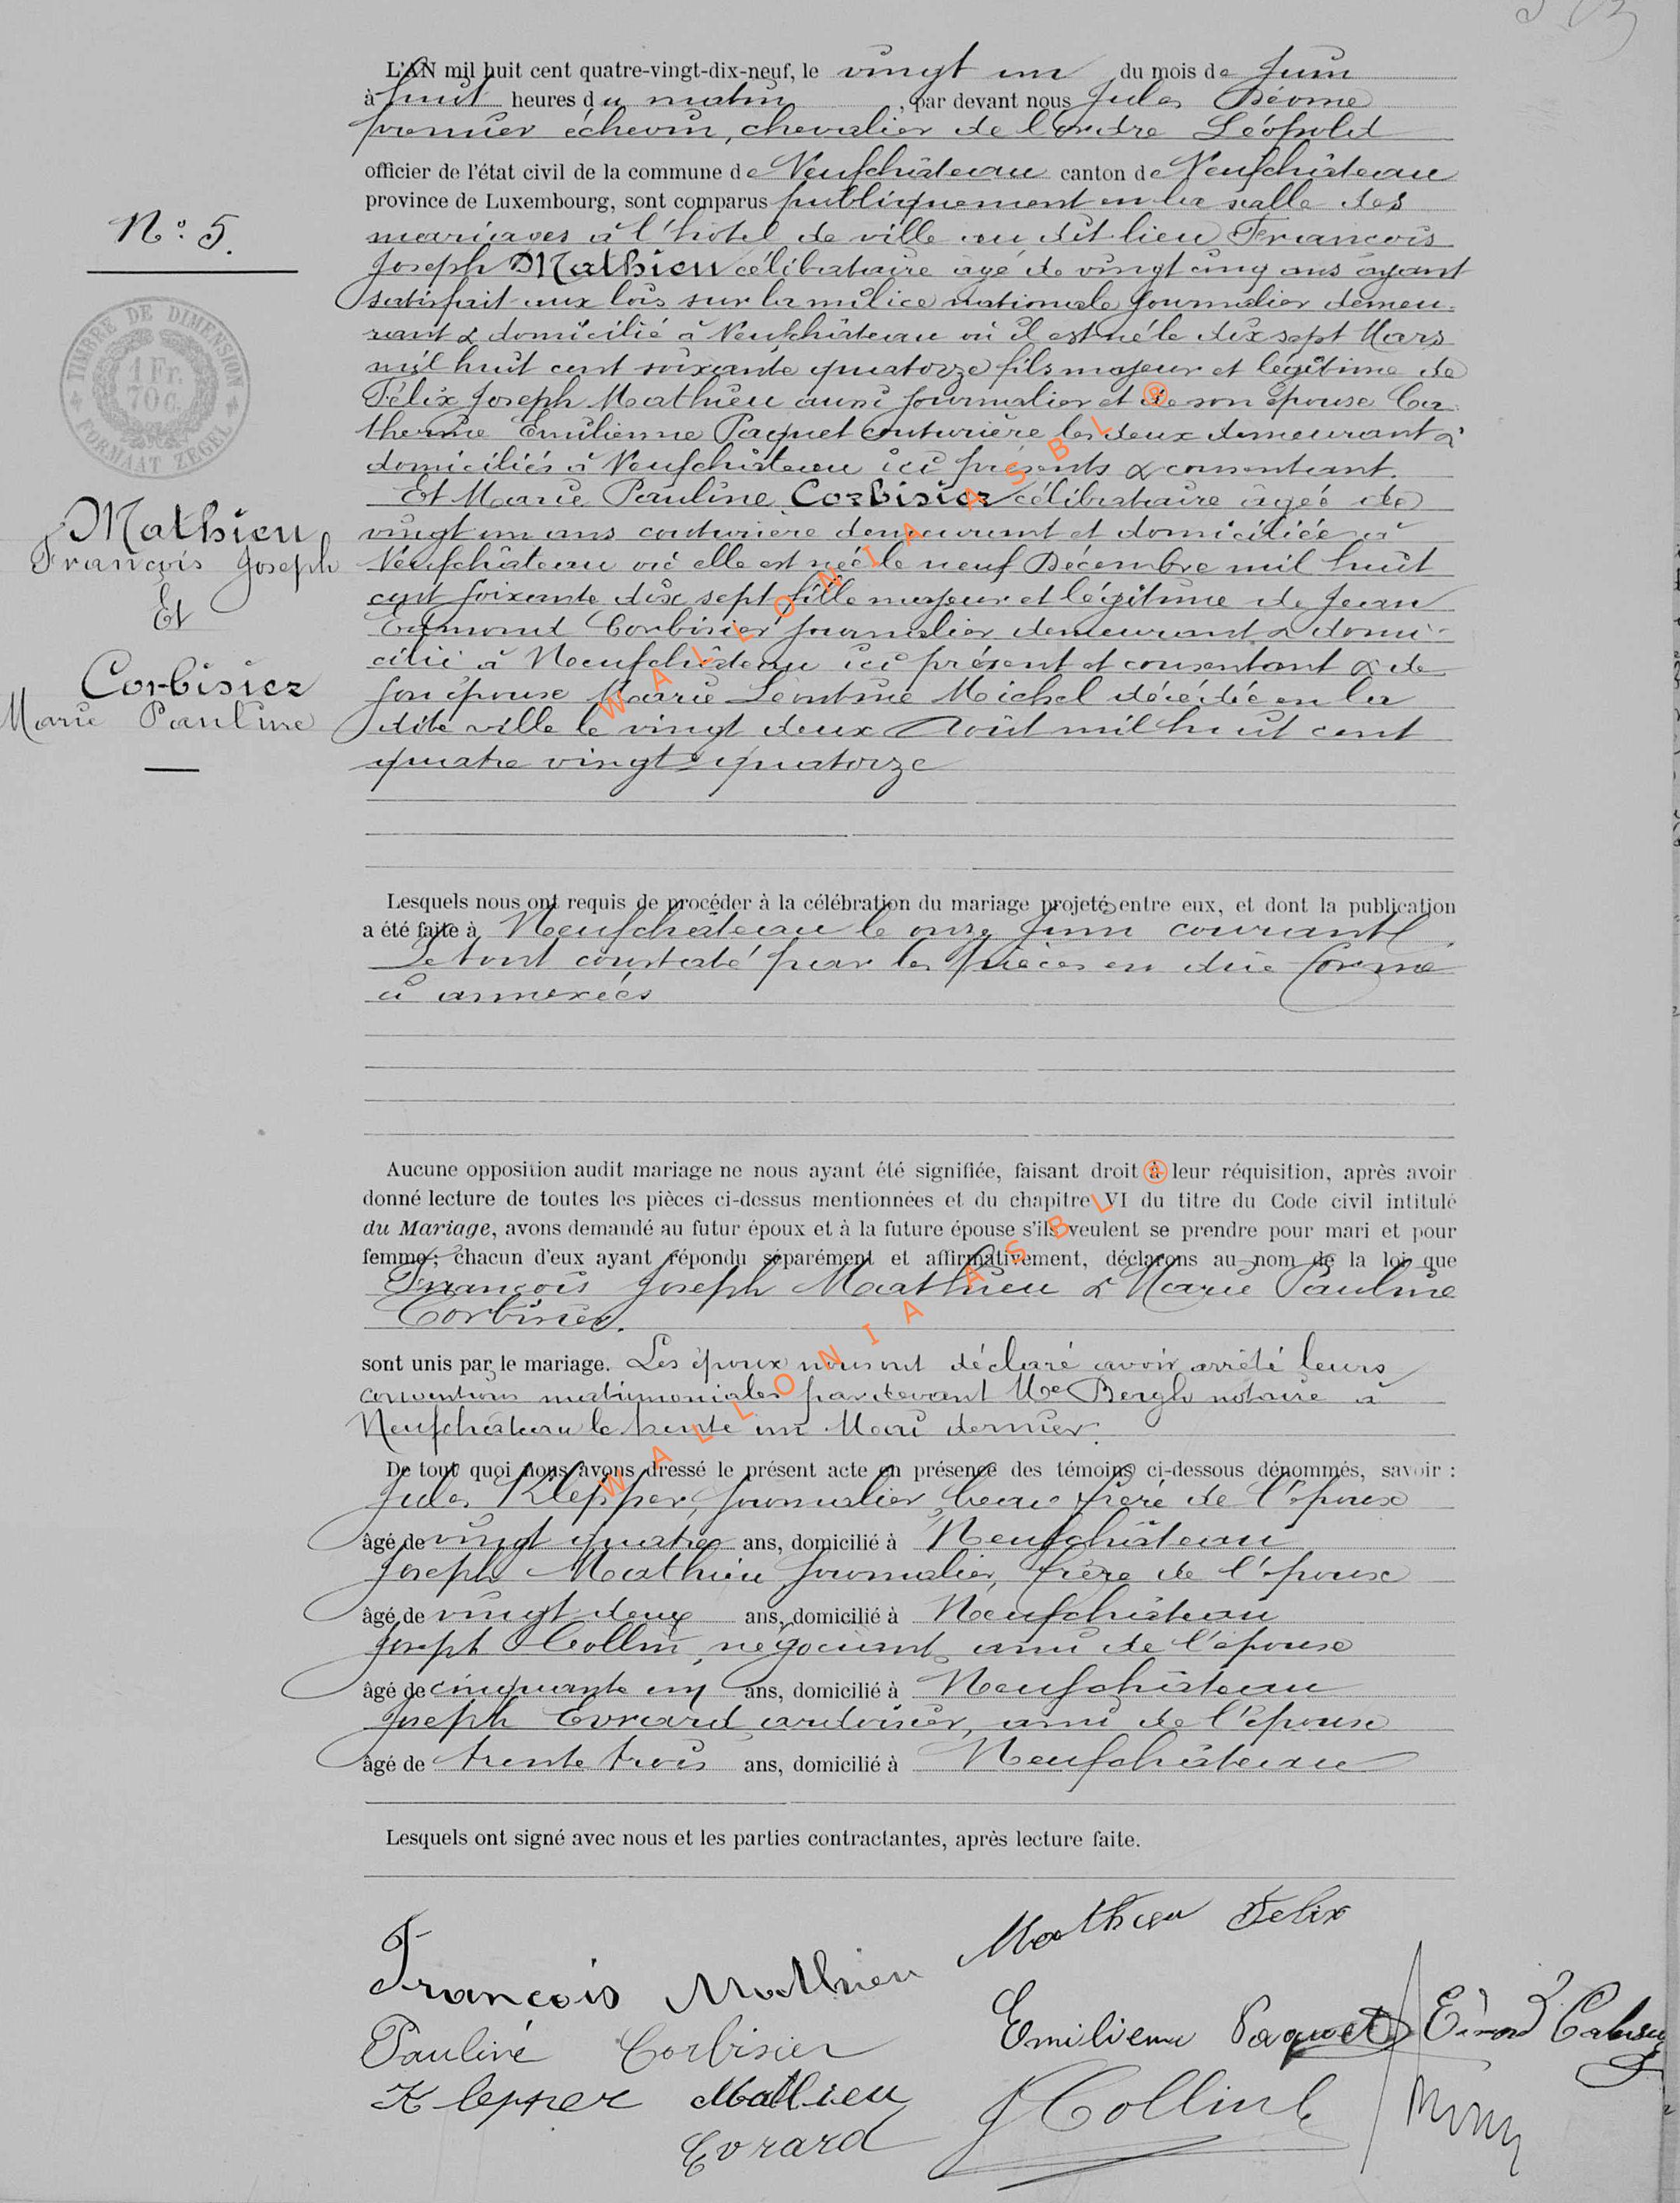 L'AN mil huit cent quatre-vingt-dix-neuf, le vingt un du mois de Juin
à huit heures du matin, par devant nous Jules Déome
premier échevin, chevalier de l'ordre Léopold
officier de l'état civil de la commune de Neufchâteau canton de Neufchâteau
province de Luxembourg, sont comparus publiquement en la salle des
mariages à l'hôtel de ville au dit lieu François
Joseph Mathieu célibataire agé de vingt cinq ans ayant
satisfait aux lois sur la milice nationale journalier demeu-
rant & domicilié à Neufchâteau où il est né le dix sept Mars
mil huit cent soixante quatorze fils majeur et légitime de
Félix Joseph Mathieu aussi journalier et de son épouse Ca-
therine Emilienne Paquet couturière les deux demeurant &
domiciliés à Neufchâteau ici présents & consentant.
Et Marie Pauline Corbisier célibataire agée de
vingt un ans couturière demeurant et domiciliée à
Neufchâteau où elle est née le neuf Décembre mil huit
cent soixante dix sept fille majeur et légitime de Jean
Edmond Corbisier journalier demeurant & domi-
cilié à Neufchâteau ici présent et consentant & de
son épouse Marie Léontine Michel décédée en la
dite ville le vingt deux Août mil huit cent
quatre vingt quatorze
N° 5.
TIMBRE DE DIMENSION
1 Fr.
70 C.
FORMAAT ZEGEL
Mathieu
François Joseph
Et
Corbisier
Marie Pauline
Lesquels nous ont requis de procéder à la célébration du mariage projeté entre eux, et dont la publication
a été faite à Neufchâteau le onze Juin courant.
Le tout constaté par les pièces en due forme
ci annexées
Aucune opposition audit mariage ne nous ayant été signifiée, faisant droit à leur réquisition, après avoir
donné lecture de toutes les pièces ci-dessus mentionnées et du chapitre VI du titre du Code civil intitulé
du Mariage, avons demandé au futur époux et à la future épouse s'ils veulent se prendre pour mari et pour
femme; chacun d'eux ayant répondu séparément et affirmativement, déclarons au nom de la loi que
François Joseph Mathieu & Marie Pauline
Corbisier.
sont unis par le mariage. Les époux nous ont déclaré avoir arrêté leurs
conventions matrimoniales pardevant Me Bergh notaire à
Neufchâteau le trente un Mai dernier.
De tout quoi nous avons dressé le présent acte en présence des témoins ci-dessous dénommés, savoir :
Jules Klepper, journalier, beau frère de l'époux
âgé de vingt quatre ans, domicilié à Neufchâteau
Joseph Mathieu journalier, frère de l'époux
âgé de vingt deux ans, domicilié à Neufchâteau
Joseph Collin, négociant, ami de l'épouse
âgé de cinquante un ans, domicilié à Neufchâteau
Joseph Evrard ardoisier, ami de l'épouse
âgé de trente trois ans, domicilié à Neufchâteau
Lesquels ont signé avec nous et les parties contractantes, après lecture faite.
François Mathieu Mathieu Felix
Pauline Corbisier Emilienne Paquet
Klepper Mathieu J Collin
Evrard
WALLONIA ASBL ®
WALLONIA ASBL ®